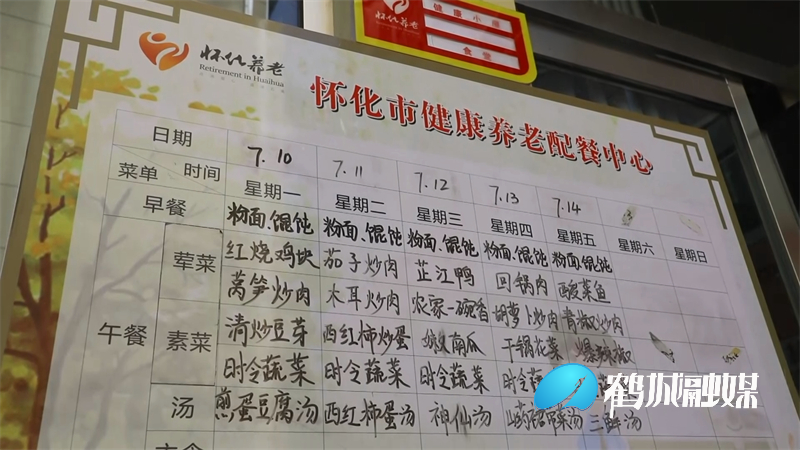 健康小屋
食堂
怀化养老
Retirement in Huaihua
怀化市健康养老配餐中心
日期 7.10 7.11 7.12 7.13 7.14
菜单 时间 星期一 星期二 星期三 星期四 星期五 星期六 星期日
早餐 粉面、馄饨 粉面、馄饨 粉面、馄饨 粉面、馄饨 粉面、馄饨
午餐 荤菜 红烧鸡块 茄子炒肉 芷江鸭 回锅肉 酸菜鱼
莴笋炒肉 木耳炒肉 农家一碗香 胡萝卜炒肉 青椒炒肉
素菜 清炒豆芽 西红柿炒蛋 南瓜 干锅花菜
时令蔬菜 时令蔬菜 时令蔬菜 时令蔬
汤 煎蛋豆腐汤 西红柿蛋汤 神仙汤 三鲜汤
鹤城融媒